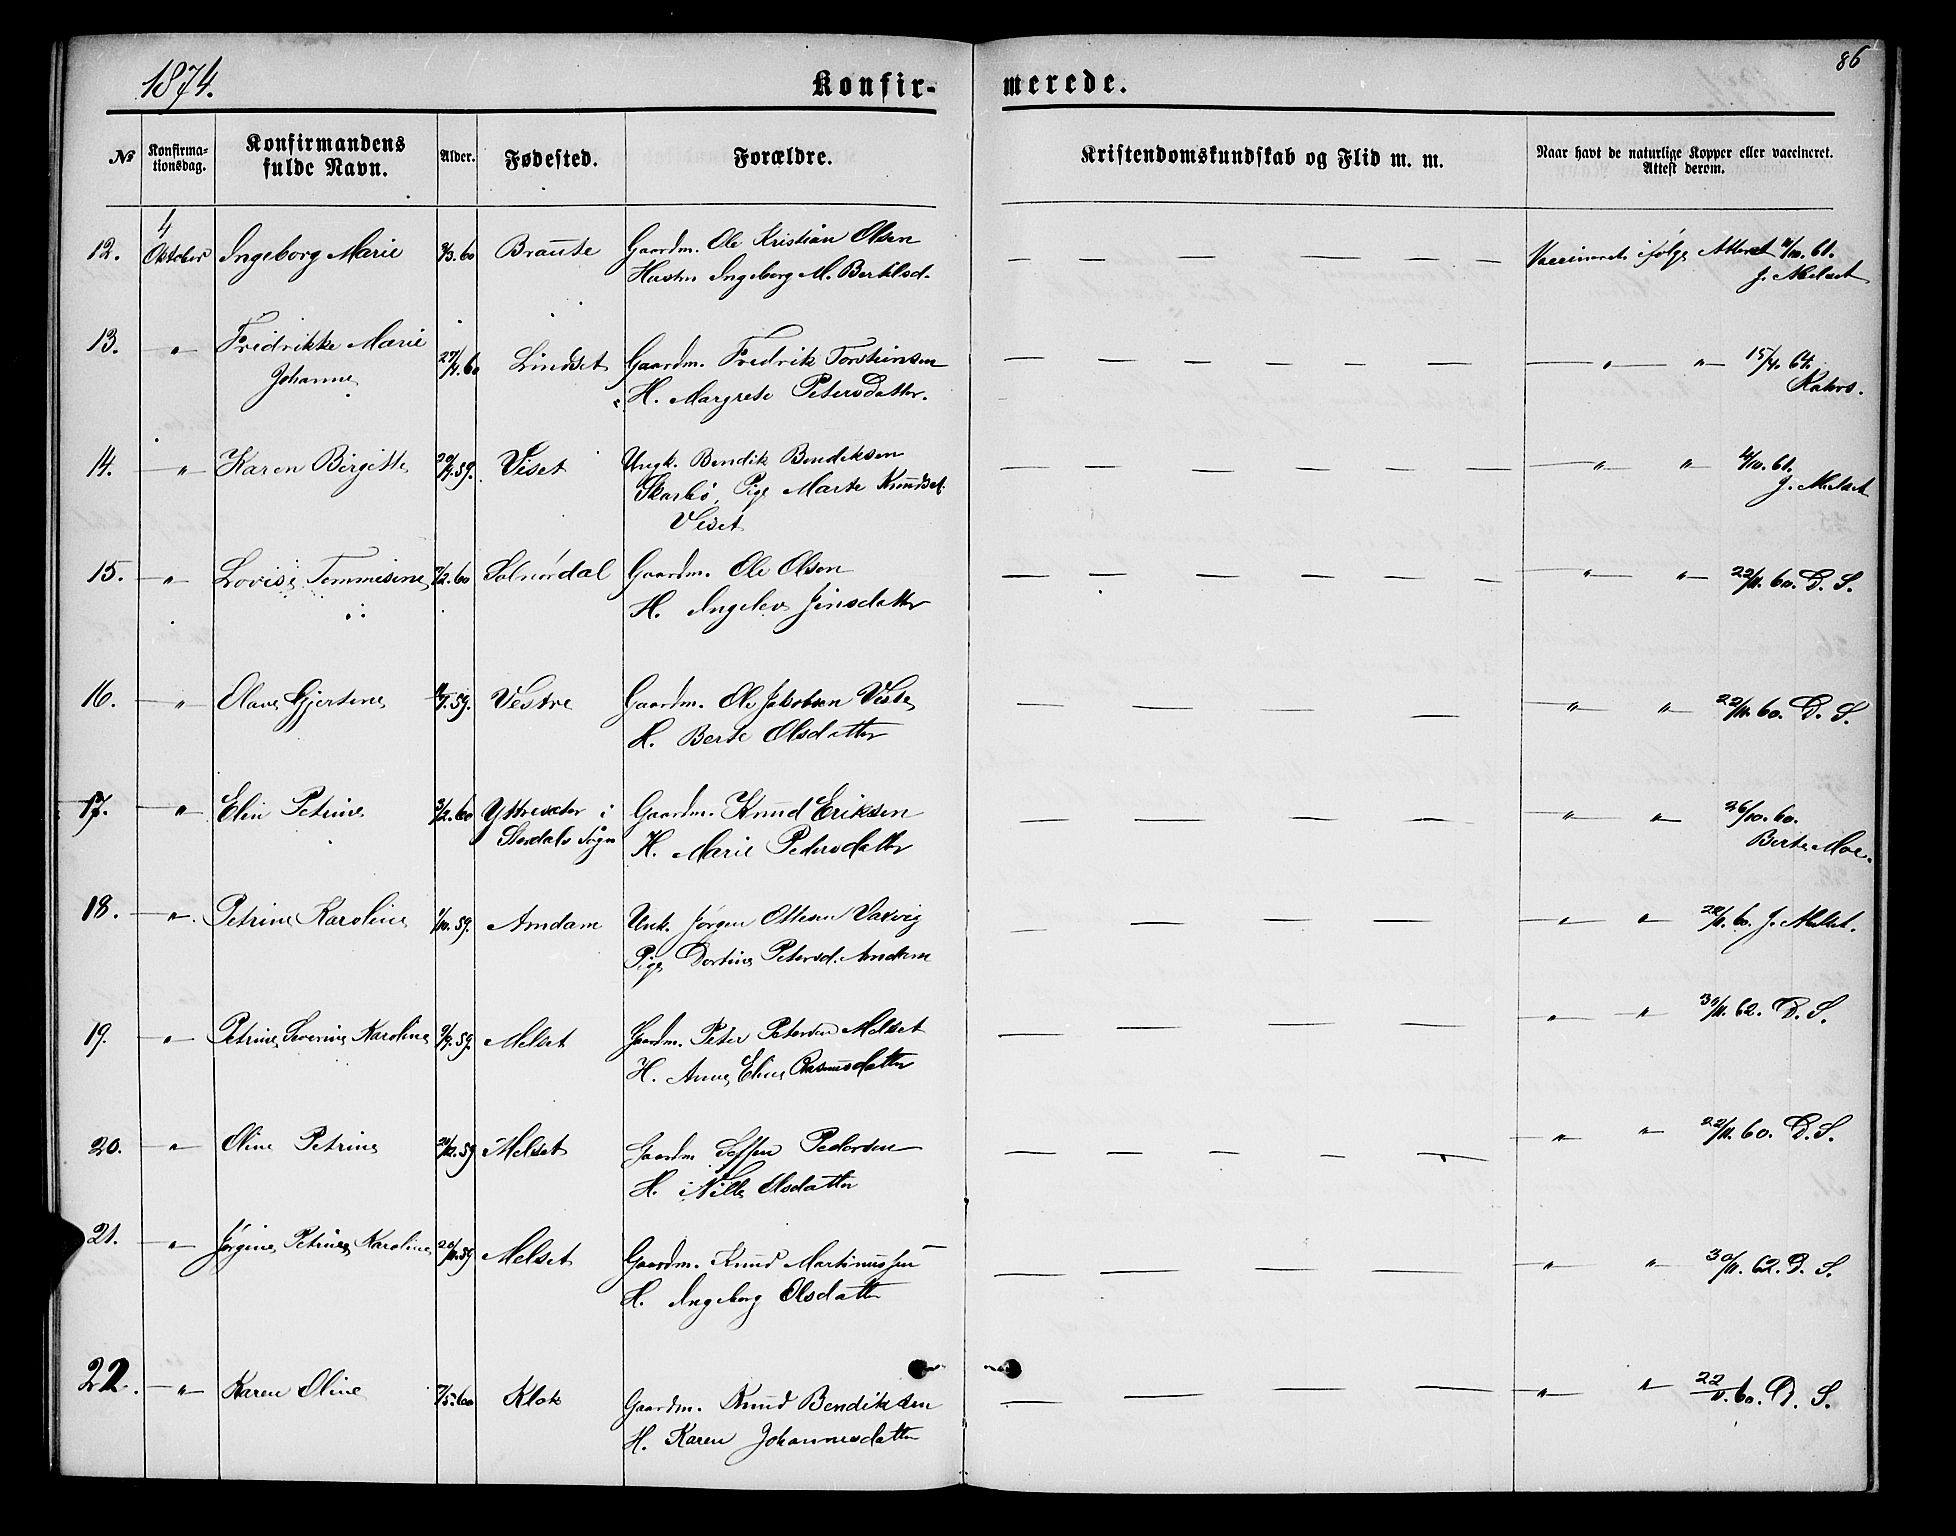 1874. Konfir- merede. 86
№ Konfirma-tionsdag. Konfirmandens fulde Navn. Alder. Fødested. Forældre. Kristendomskundskab og Flid m. m. Naar havt de naturlige Kopper eller vaccineret. Attest derom.
12. 4 Oktober Ingeborg Marie 9/3.60 Brauste Gaardm. Ole Kristian Olsen — — — — — — Vaccineret ifølge Attest 4/10.61.
Hustru Ingeborg M. Bertelsd. J. Melset
13. — " — Fredrikke Marie 27/4.60 Lindset Gaardm. Fredrik Torsteinsen — — — — — — — " — " — 15/4.64.
Johanne H. Margrete Petersdatter. Rahrs.
14. — " — Karen Birgitte 20/4.59. Viset Ungk. Bendik Bendiksen — — — — — — — " — " — 4/10.61.
Skarbø, Pige Marte Knudsd. J. Melset
Viset
15. — " — Lovise Tommesine 7/2.60 Solnørdal Gaardm. Ole Olsen — — — — — — — " — " — 22/11.60. D. S.
H. Ingeborg Jensdatter
16. — " — Olave Gjertine 11/9.59. Vestre Gaardm. Ole Jakobsen Viste — — — — — " — " — 22/11.60. D. S.
H. Berte Olsdatter
17. — " — Elen Petrine 3/2.60 Yttresæter i Gaardm. Knud Eriksen — — — — — " — " — 26/10.60.
Stordals Sogn H. Marie Pedersdatter Berte Moe.
18. — " — Petrine Karoline 1/10.59. Amdam Unk. Jørgen Ottesen Vaxvig — — — — — " — " — 22/11.60. J. Melset.
Pige Dortine Petersd. Amdam
19. — " — Petrine Severine Karoline 9/9.59. Melset Gaardm. Peter Petersen Melset — — — — — " — " — 30/11.62. D. S.
H. Anne Eline Rasmusdatter
20. — " — Oline Petrine 21/12.59 Melset Gaardm. Steffen Pedersen — — — — — — " — " — 22/11.60. D. S.
H. Nille Olsdatter
21. — " — Jørgine Petrine Karoline 20/11.59 Melset Gaardm. Knud Martinussen — — — — — " — " — 30/11.62. D. S.
H. Ingeborg Olsdatter
22. — " — Karen Oline 7/5.60 Klok Gaardm. Knud Bendiksen — — — — — " — " — 22/11.60. D. S.
H. Karen Johannesdatter